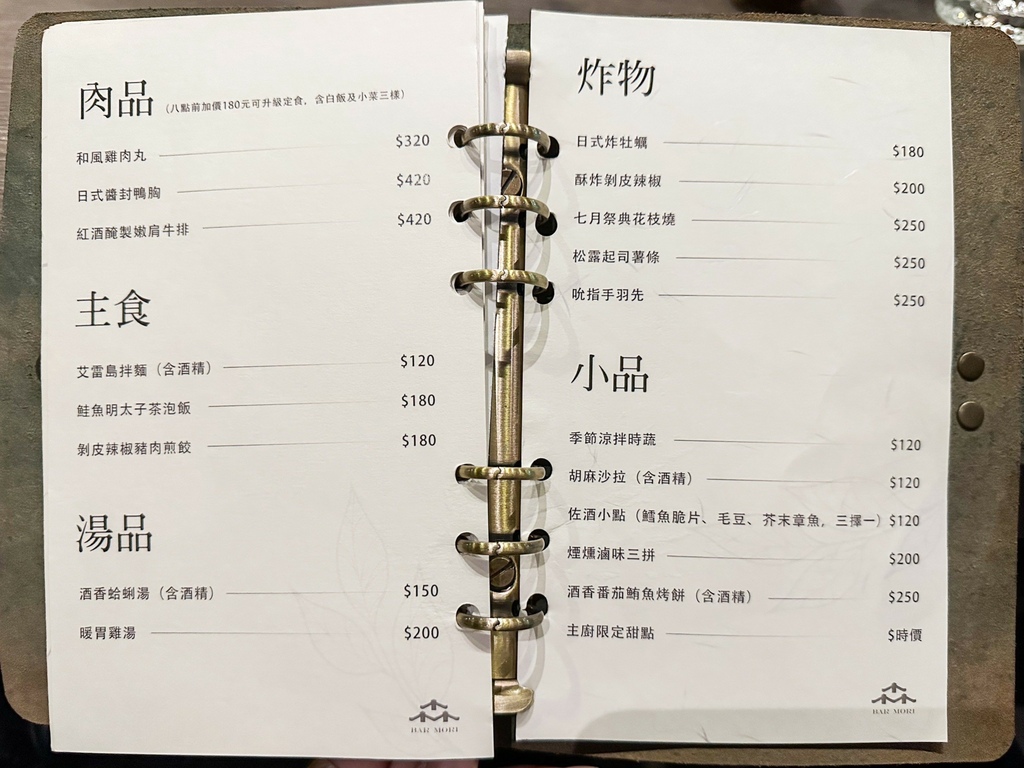 肉品（八點前加價180元可升級定食，含白飯及小菜三樣）
和風雞肉丸 $320
日式醬封鴨胸 $420
紅酒醃製嫩肩牛排 $420
主食
艾雷島拌麵（含酒精） $120
鮭魚明太子茶泡飯 $180
剝皮辣椒豬肉煎餃 $180
湯品
酒香蛤蜊湯（含酒精） $150
暖胃雞湯 $200
BAR MORI
炸物
日式炸牡蠣 $180
酥炸剝皮辣椒 $200
七月祭典花枝燒 $250
松露起司薯條 $250
吮指手羽先 $250
小品
季節涼拌時蔬 $120
胡麻沙拉（含酒精） $120
佐酒小點（鱈魚脆片、毛豆、芥末章魚，三擇一） $120
煙燻滷味三拼 $200
酒香番茄鮪魚烤餅（含酒精） $250
主廚限定甜點 $時價
BAR MORI